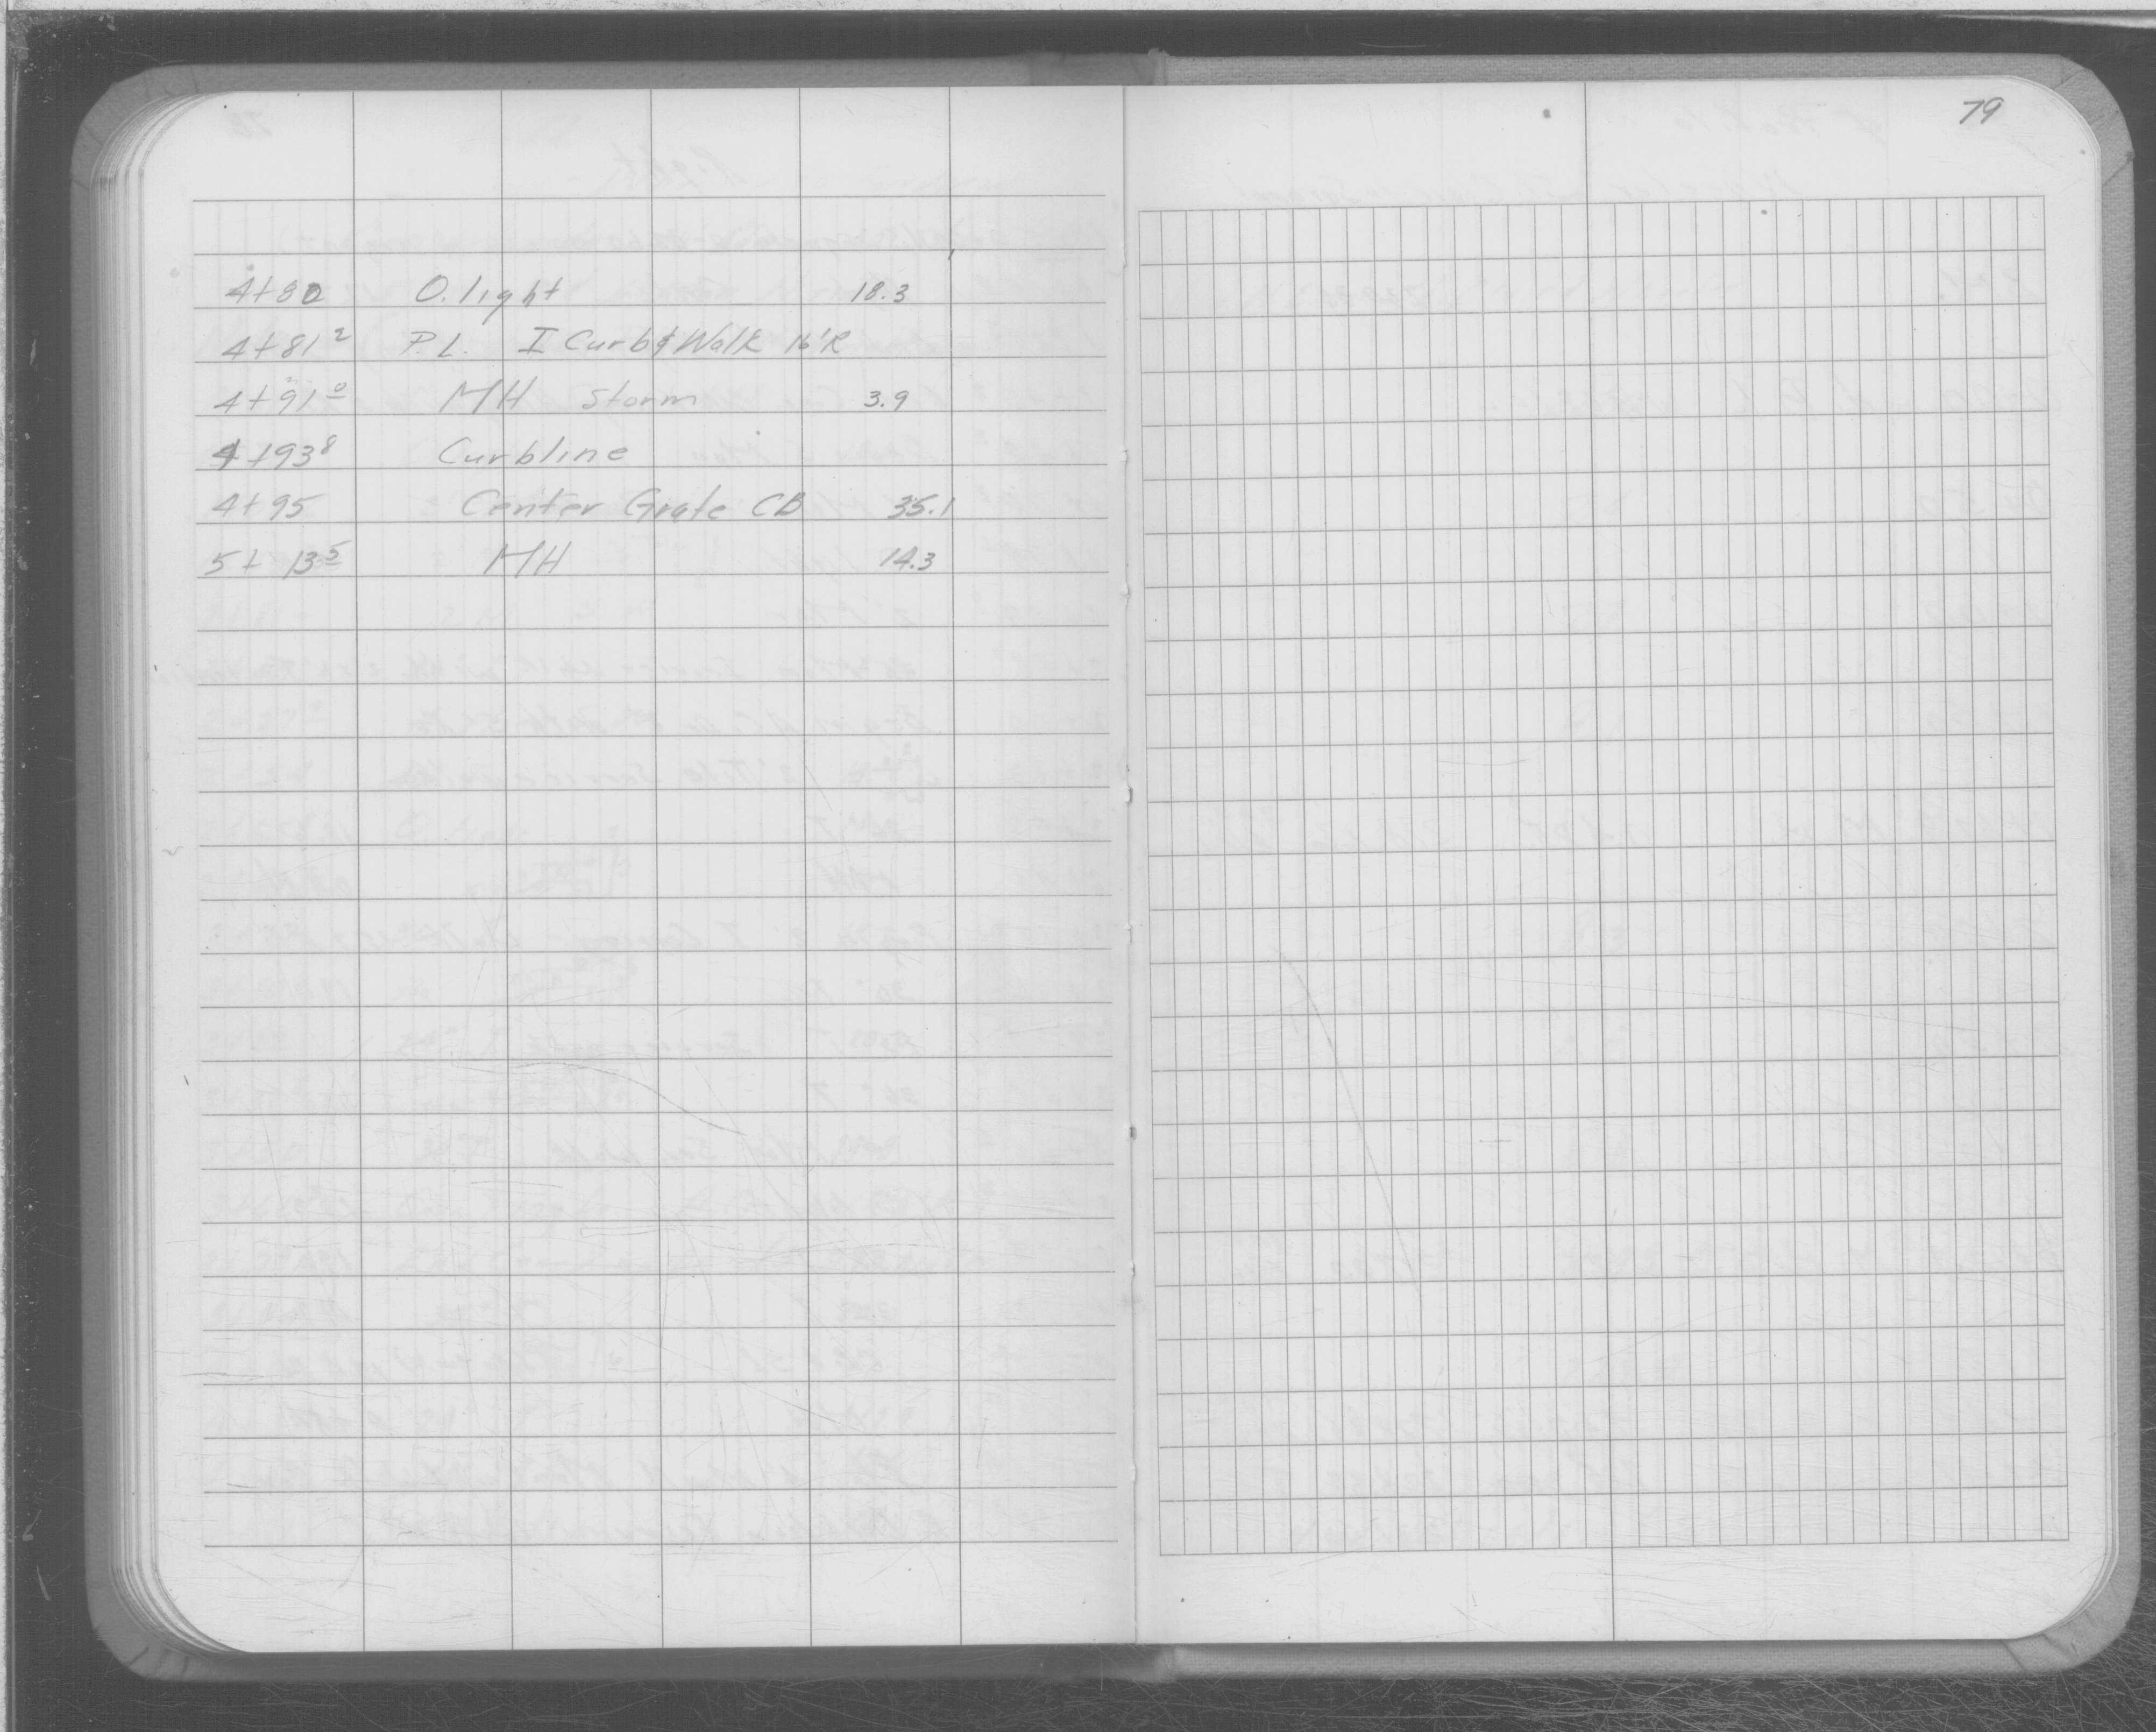 79
4+80 O.light 18.3
4+81² P.L. I Curb & Walk 16'R
4+91⁰ MH Storm 3.9
4+93⁸ Curbline
4+95 Center Grate CB 35.1
5+13⁵ MH 14.3